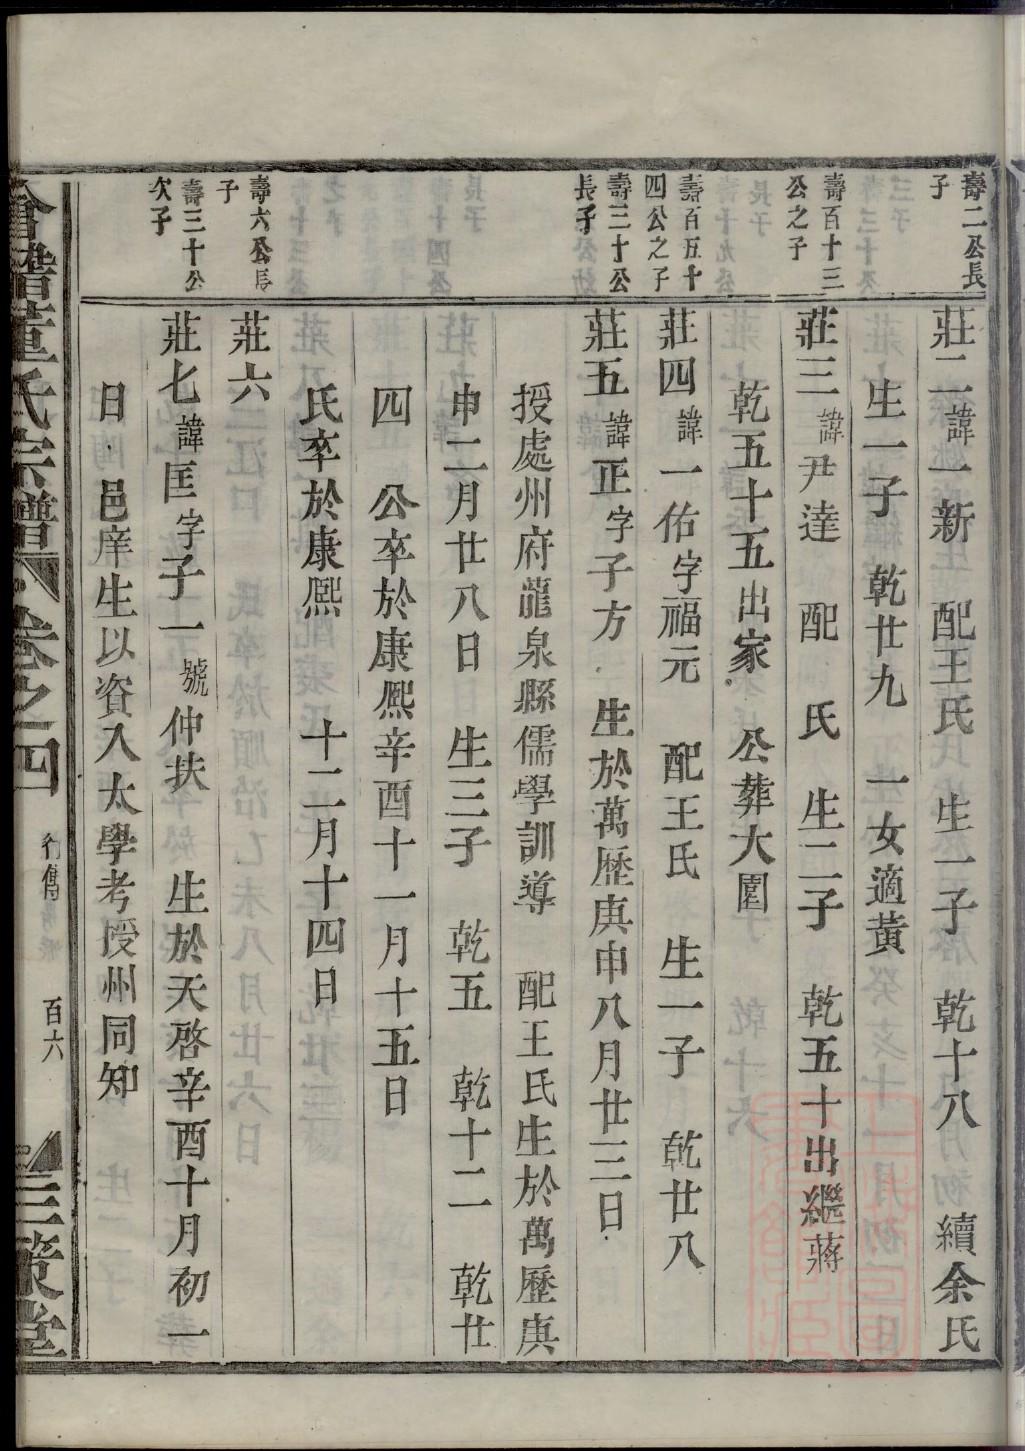 壽二公長
子
莊二諱一新　配王氏　生一子　乾十八　續余氏
生一子　乾廿九　一女適黃
壽百十三
公之子
莊三諱尹達　配　氏　生二子　乾五十出繼蔣
乾五十五出家　公葬大園
壽百五十
四公之子
莊四諱一佑字福元　配王氏　生一子　乾廿八
壽三十公
長子
莊五諱正字子方　生於萬歷庚申八月廿三日
授處州府龍泉縣儒學訓導　配王氏生於萬歷庚
申二月廿八日　生三子　乾五　乾十二　乾廿
四　公卒於康熙辛酉十一月十五日
氏卒於康熙　十二月十四日
壽六公長
子
莊六
壽三十公
次子
莊七諱匡字子一號仲扶　生於天啓辛酉十月初一
日　邑庠生以資入太學考授州同知
會稽董氏宗譜　卷之四　行傳　百六　三策堂